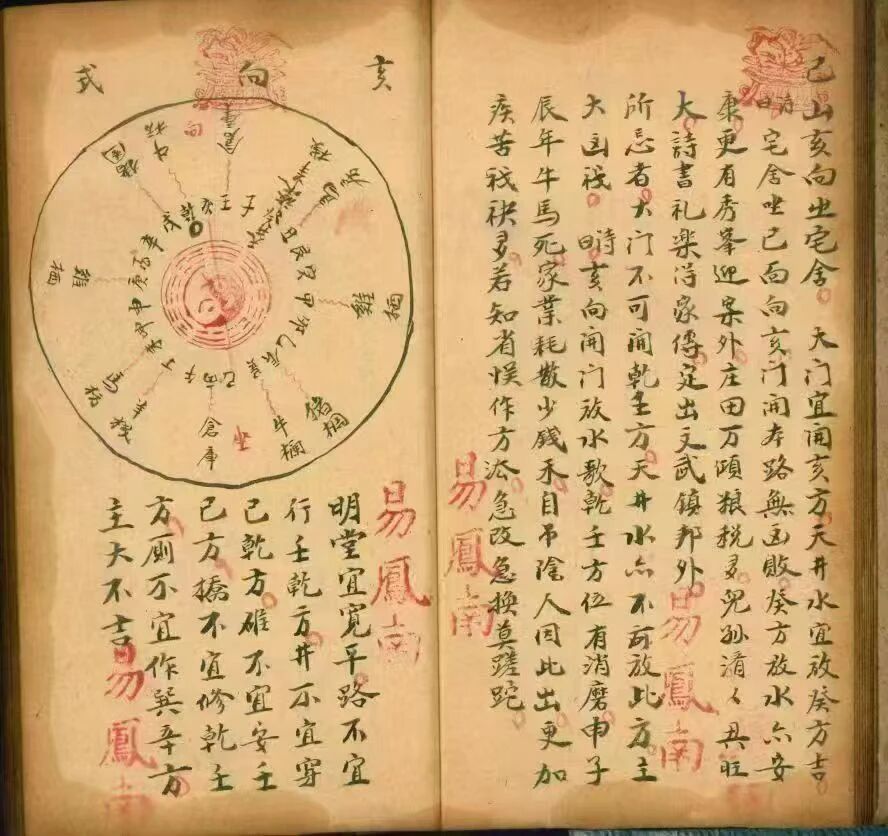 巳山亥向坐宅舍。大门宜開亥方天井水宜放癸方吉。
詩曰 宅舍坐巳面向亥門開夲路無凶敗癸方放水亦安
康更有秀峯迎案外庄田万頃粮税多兒孫濟々具旺
大詩書礼樂淂家傳定出文武鎮邦外。
所忌者大门不可開乾壬方天井水亦不可放此方。主
大凶戝。詩曰亥向開门放水歌乾壬方位有消磨申子
辰年牛馬死家業耗散少錢禾自吊陰人因此出更加
疾苦戝秧多若知省悮作方法急改急換莫蹉跎
易鳳南
易鳳南
亥向式
向
倉庫
壬子
丑艮寅甲卯乙辰巽
巳丙午丁
申庚
辛戌乾亥
雞栖
猪欄
牛欄
倉庫
坐
馬
雞栖
明堂宜寬平路不宜
行壬乾方井不宜穿
巳乾方碓不宜安壬
巳方橋不宜修乾壬
方厠不宜作巽辛方
主大不吉
易鳳南
易鳳南